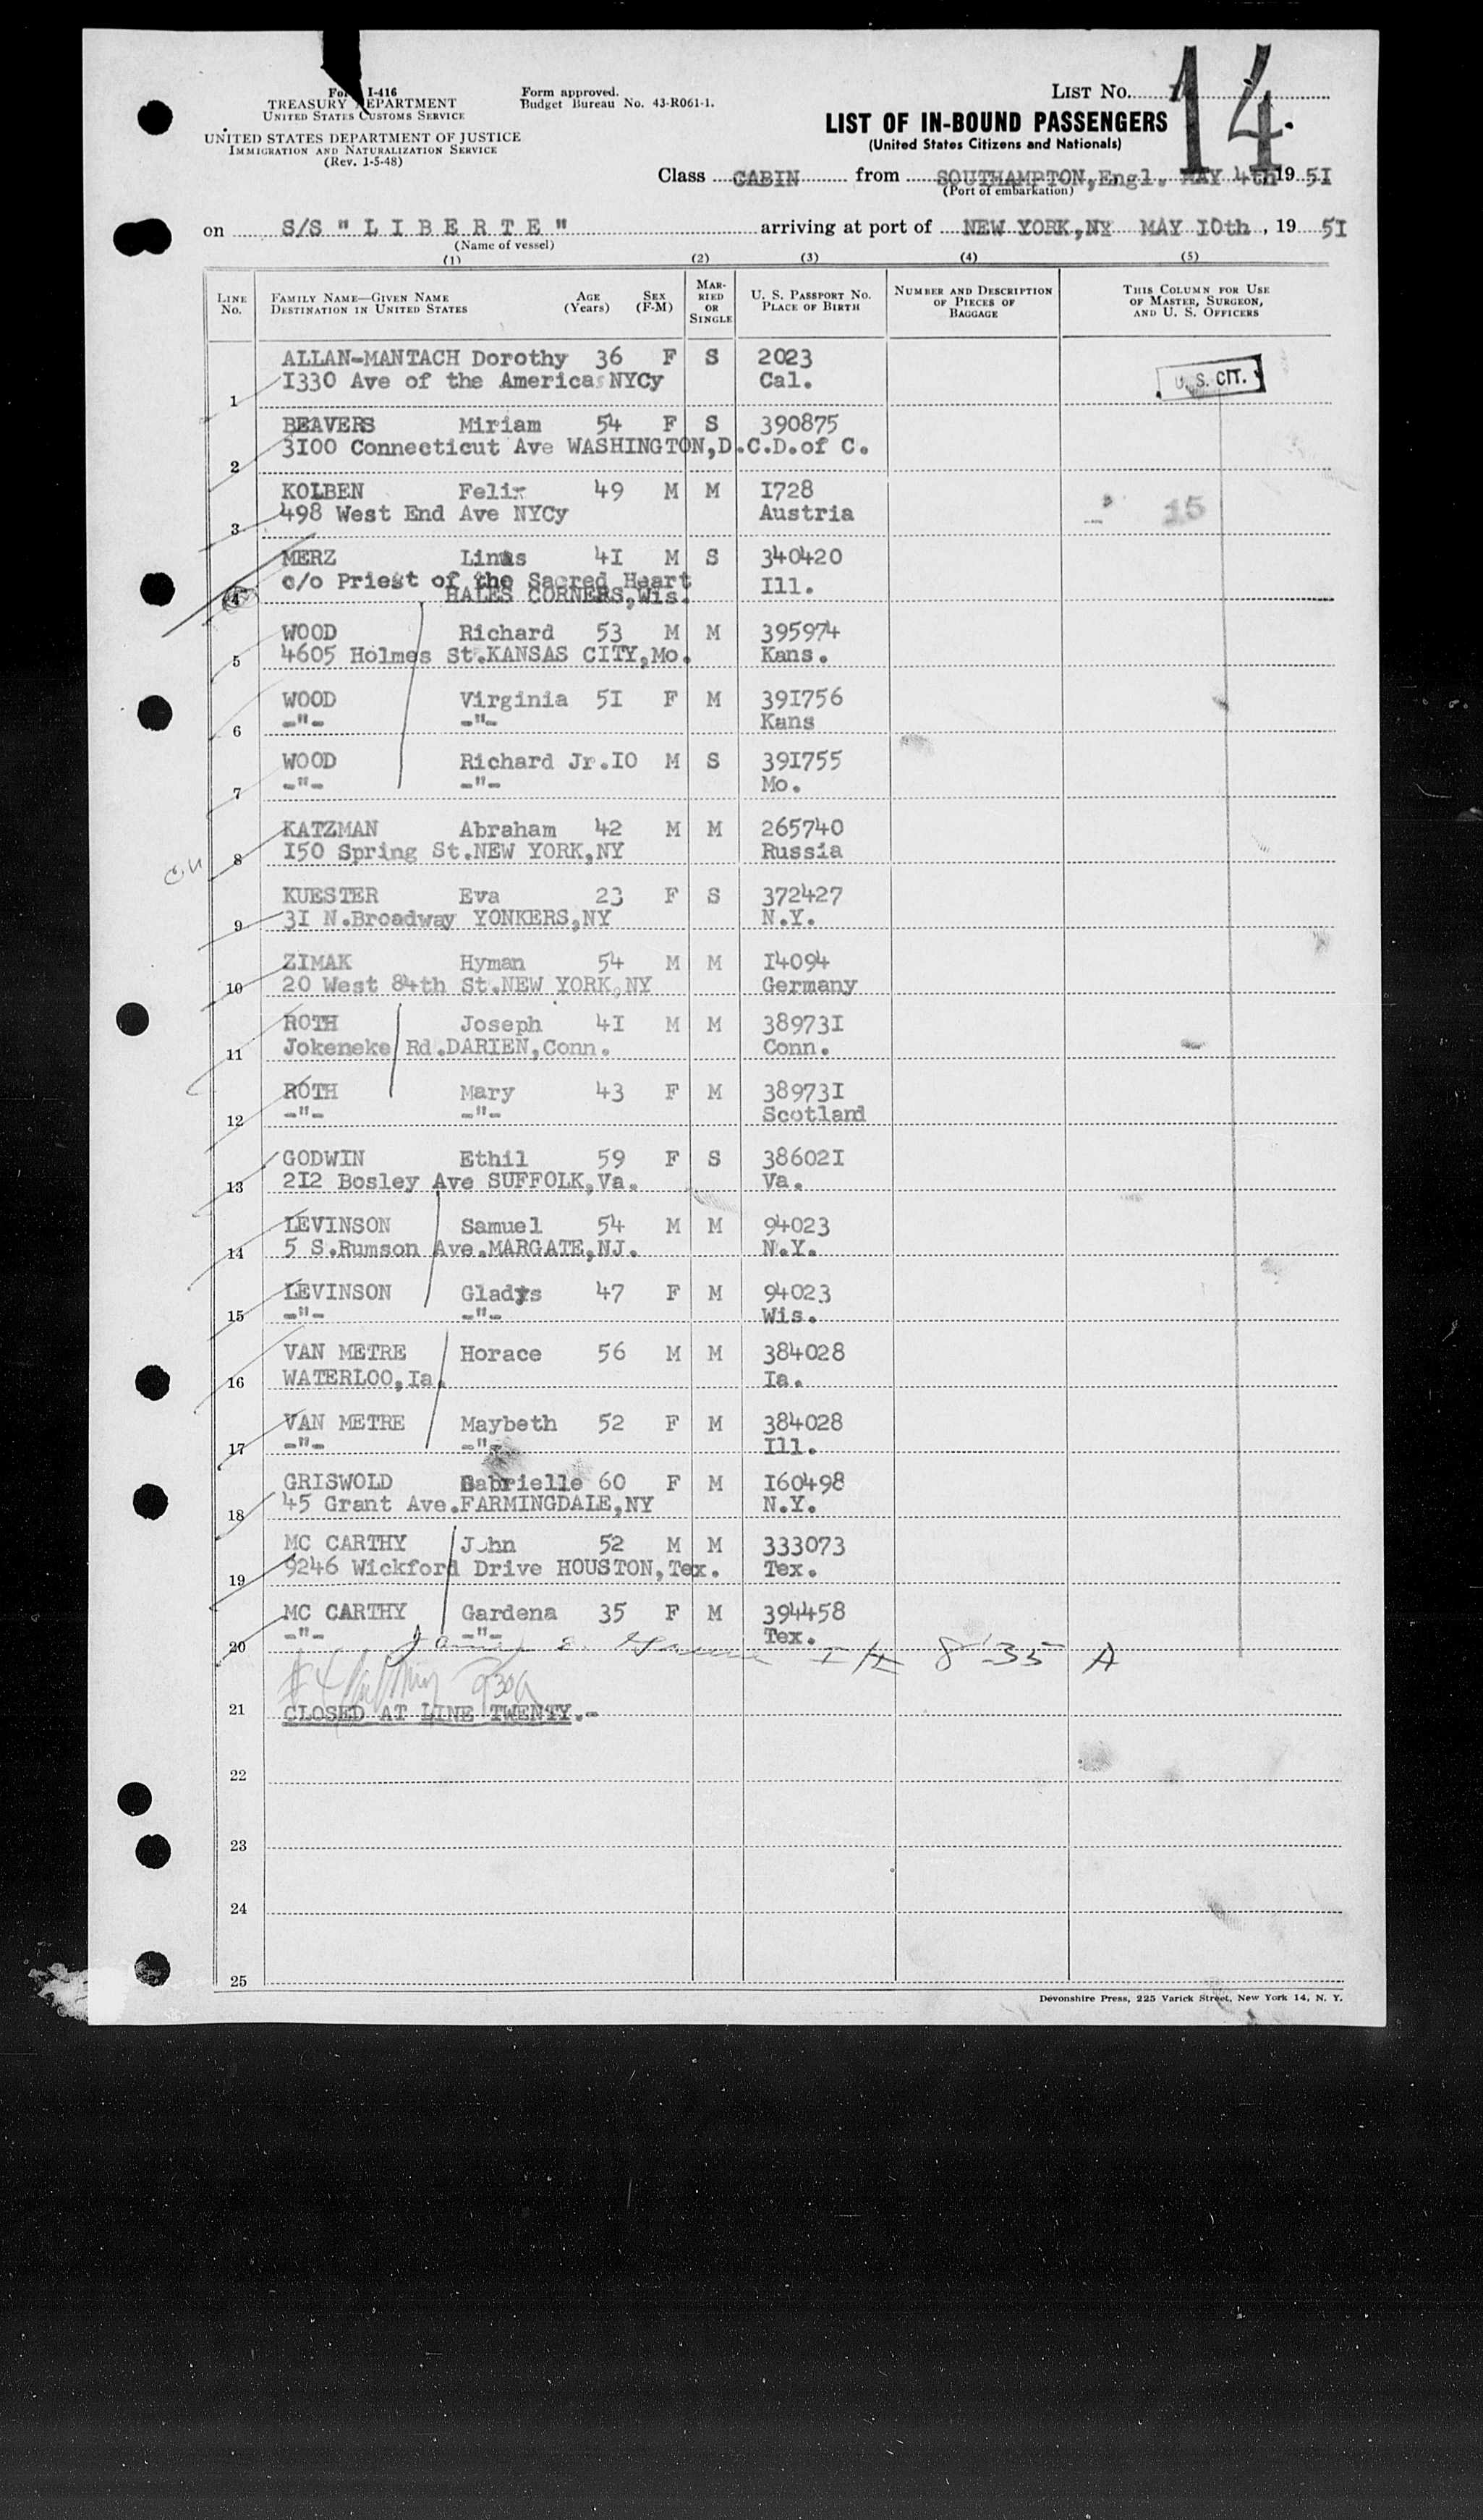 Form I-416
TREASURY DEPARTMENT
UNITED STATES CUSTOMS SERVICE
UNITED STATES DEPARTMENT OF JUSTICE
IMMIGRATION AND NATURALIZATION SERVICE
(Rev. 1-5-48)
Form approved.
Budget Bureau No. 43-R061-1.
LIST NO. 14.
LIST OF IN-BOUND PASSENGERS
(United States Citizens and Nationals)
Class CABIN from SOUTHAMPTON,Engl. MAY 4th 19 51
(Port of embarkation)
on S/S " L I B E R T E " arriving at port of NEW YORK,NY MAY 10th, 19 51
(Name of vessel)
(1) (2) (3) (4) (5)
LINE NO. FAMILY NAME—GIVEN NAME DESTINATION IN UNITED STATES AGE (Years) SEX (F-M) MARRIED OR SINGLE U. S. PASSPORT NO. PLACE OF BIRTH NUMBER AND DESCRIPTION OF PIECES OF BAGGAGE THIS COLUMN FOR USE OF MASTER, SURGEON, AND U. S. OFFICERS
ALLAN-MANTACH Dorothy 36 F S 2023
1 1330 Ave of the Americas NYCy Cal. U. S. CIT.
BEAVERS Miriam 54 F S 390875
2 3100 Connecticut Ave WASHINGTON,D.C.D.of C.
KOLBEN Felix 49 M M 1728
3 498 West End Ave NYCy Austria 15
MERZ Linus 41 M S 340420
c/o Priest of the Sacred Heart Ill.
4 HALES CORNERS,Wis.
WOOD Richard 53 M M 395974
5 4605 Holmes St.KANSAS CITY,Mo. Kans.
WOOD Virginia 51 F M 391756
6 -"- -"- Kans
WOOD Richard Jr.10 M S 391755
7 -"- -"- Mo.
KATZMAN Abraham 42 M M 265740
8 150 Spring St.NEW YORK,NY Russia
KUESTER Eva 23 F S 372427
9 31 N.Broadway YONKERS,NY N.Y.
ZIMAK Hyman 54 M M 14094
10 20 West 84th St.NEW YORK,NY Germany
ROTH Joseph 41 M M 389731
11 Jokeneke Rd.DARIEN,Conn. Conn.
ROTH Mary 43 F M 389731
12 -"- -"- Scotland
GODWIN Ethil 59 F S 386021
13 212 Bosley Ave SUFFOLK,Va. Va.
LEVINSON Samuel 54 M M 94023
14 5 S.Rumson Ave.MARGATE,NJ. N.Y.
LEVINSON Gladys 47 F M 94023
15 -"- -"- Wis.
VAN METRE Horace 56 M M 384028
16 WATERLOO,Ia. Ia.
VAN METRE Maybeth 52 F M 384028
17 -"- -"- Ill.
GRISWOLD Gabrielle 60 F M 160498
18 45 Grant Ave.FARMINGDALE,NY N.Y.
MC CARTHY John 52 M M 333073
19 9246 Wickford Drive HOUSTON,Tex. Tex.
MC CARTHY Gardena 35 F M 394458
20 -"- -"- Tex.
8 35 A
21 CLOSED AT LINE TWENTY.-
22
23
24
25
Devonshire Press, 225 Varick Street, New York 14, N. Y.